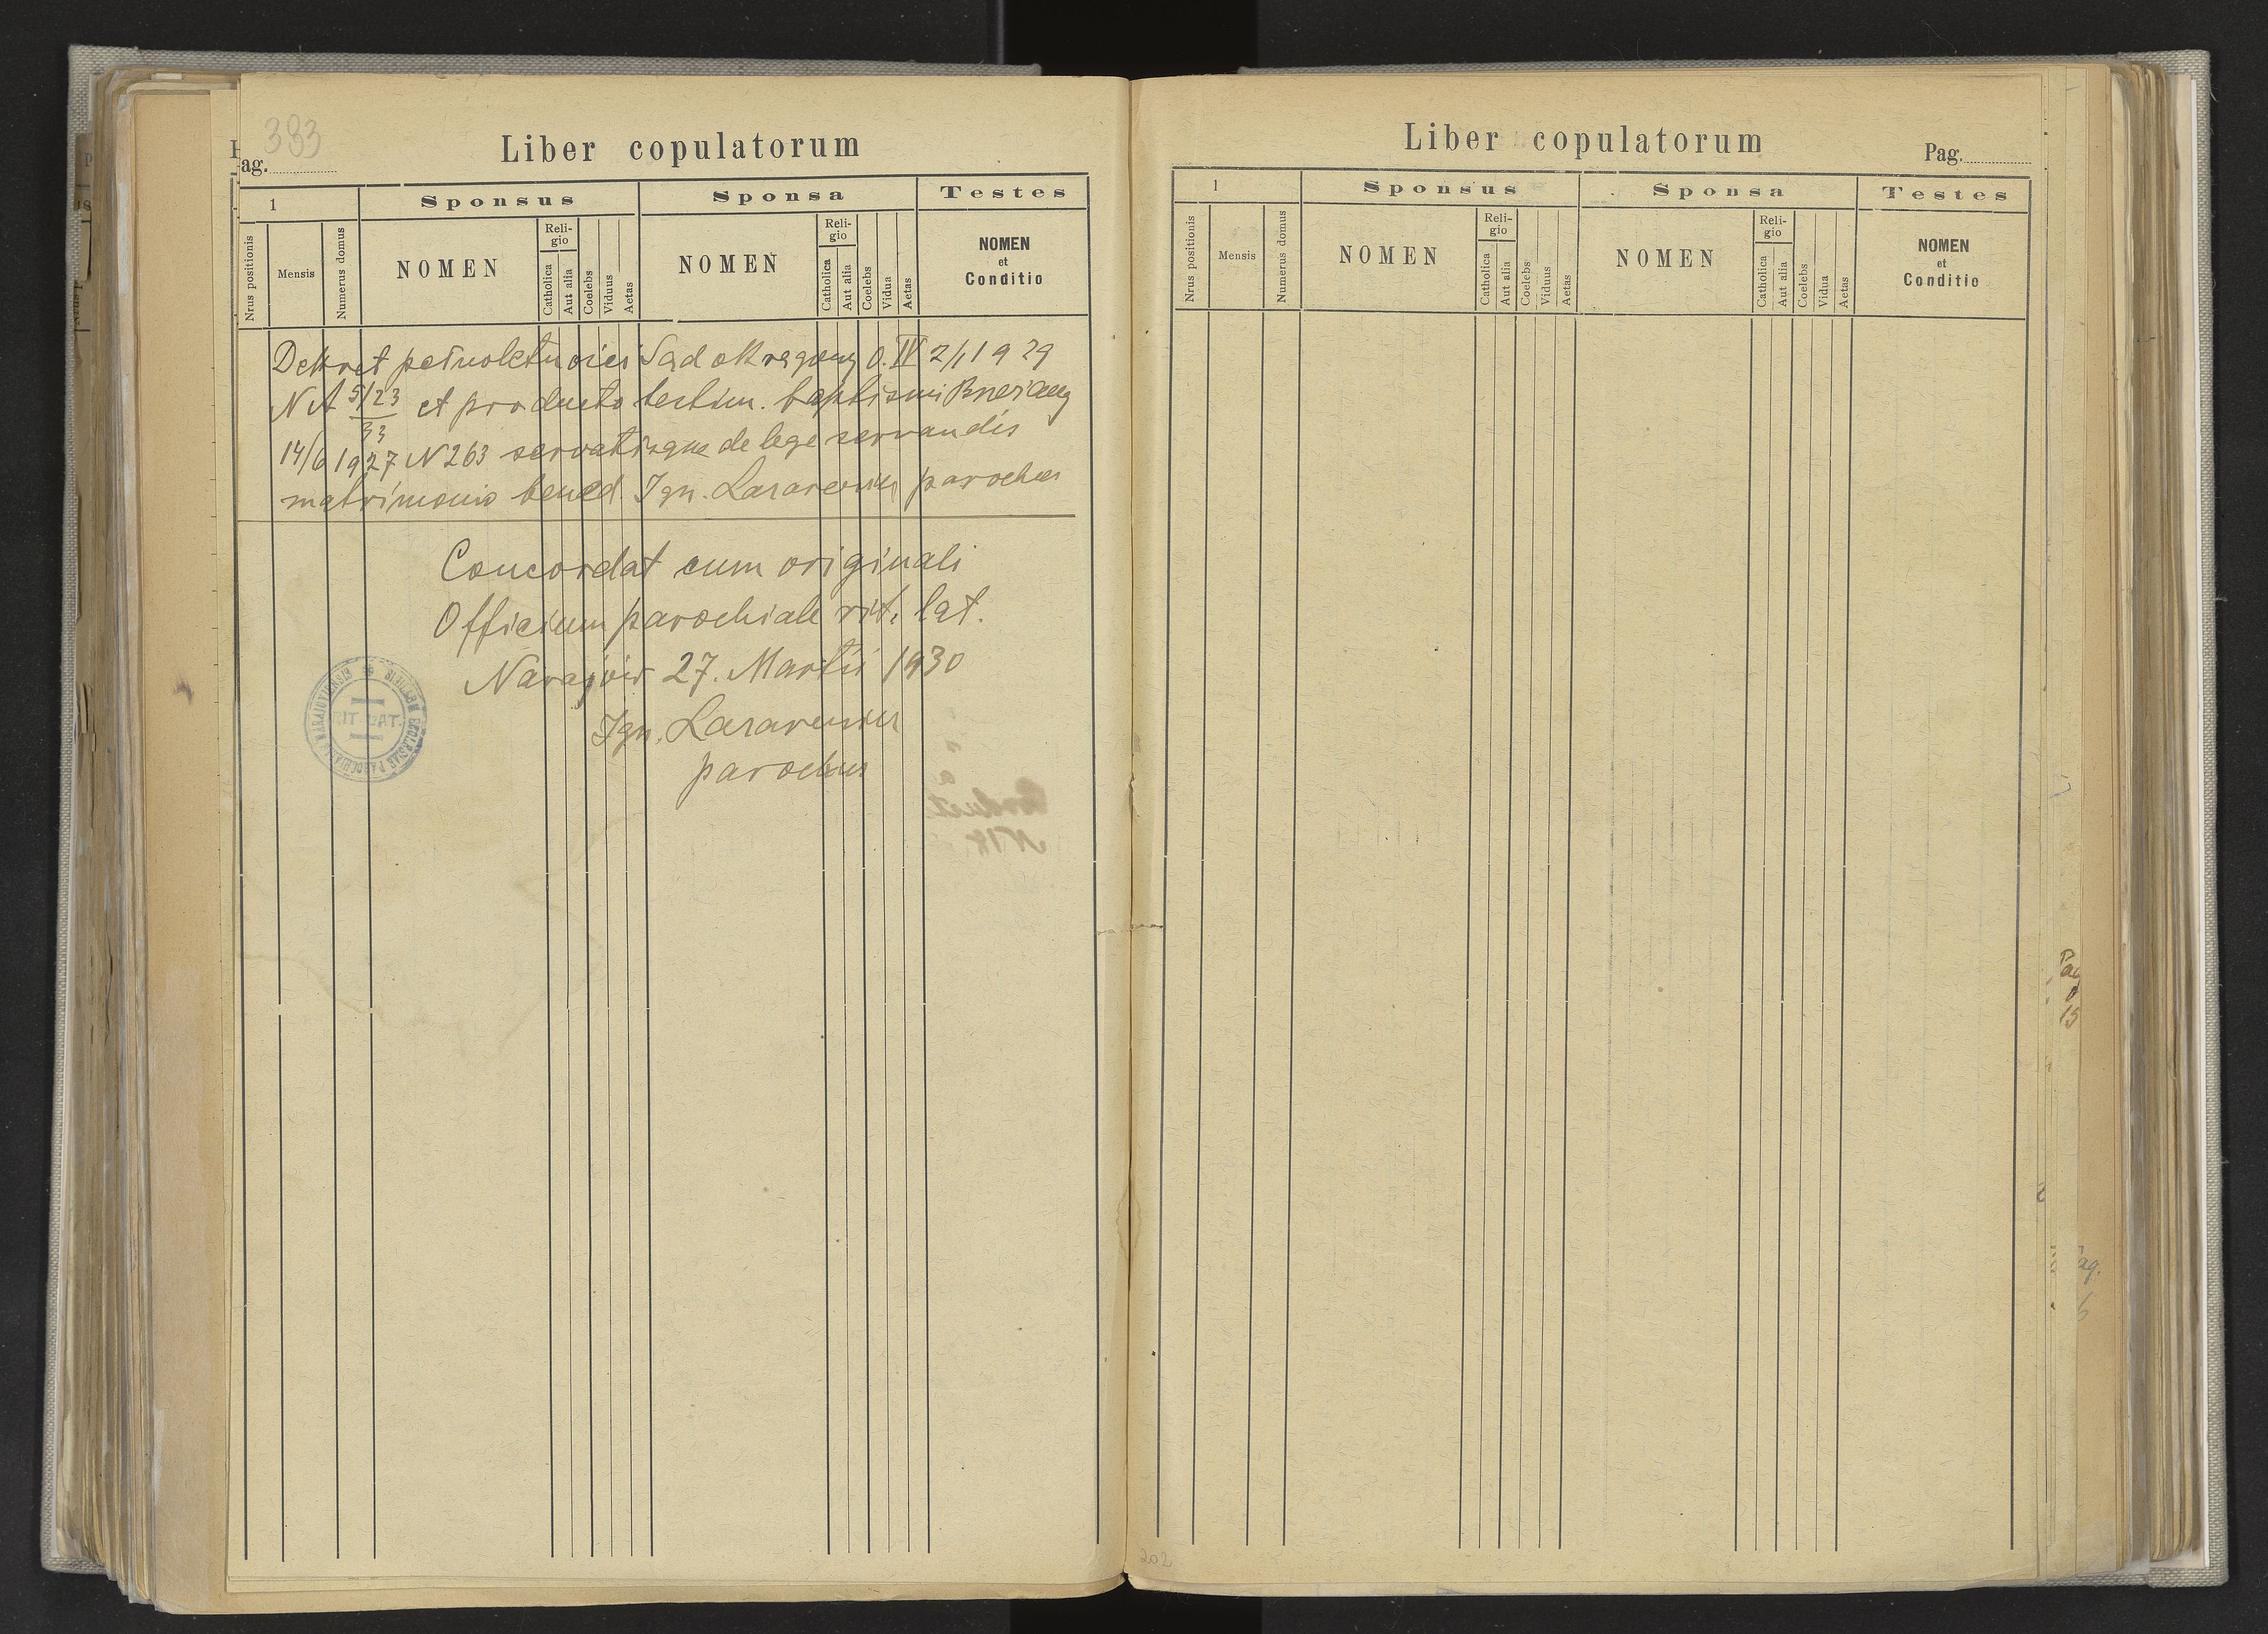 383
Pag.
Liber copulatorum
1
Sponsus
Sponsa
Testes
Nrus positionis
Mensis
Numerus domus
NOMEN
Reli-
gio
Catholica
Aut alia
Coelebs
Viduus
Aetas
NOMEN
Reli-
gio
Catholica
Aut alia
Coelebs
Vidua
Aetas
NOMEN
et
Conditio
Dekret pełnoletności Sąd okręgowy O. IV 2/1 1929
N A 5/23 et producto testim. baptismi Brzeżany
33
14/6 1927 N 263 servatisque de lege servandis
matrimonio bened. Ign. parochus
Concordat cum originali
Officium parochiale rit. lat.
Narajów 27. Martii 1930
Ign.
parochus
RIT. LAT.
Liber copulatorum
Pag.
1
Sponsus
Sponsa
Testes
Nrus positionis
Mensis
Numerus domus
NOMEN
Reli-
gio
Catholica
Aut alia
Coelebs
Viduus
Aetas
NOMEN
Reli-
gio
Catholica
Aut alia
Coelebs
Vidua
Aetas
NOMEN
et
Conditio
202